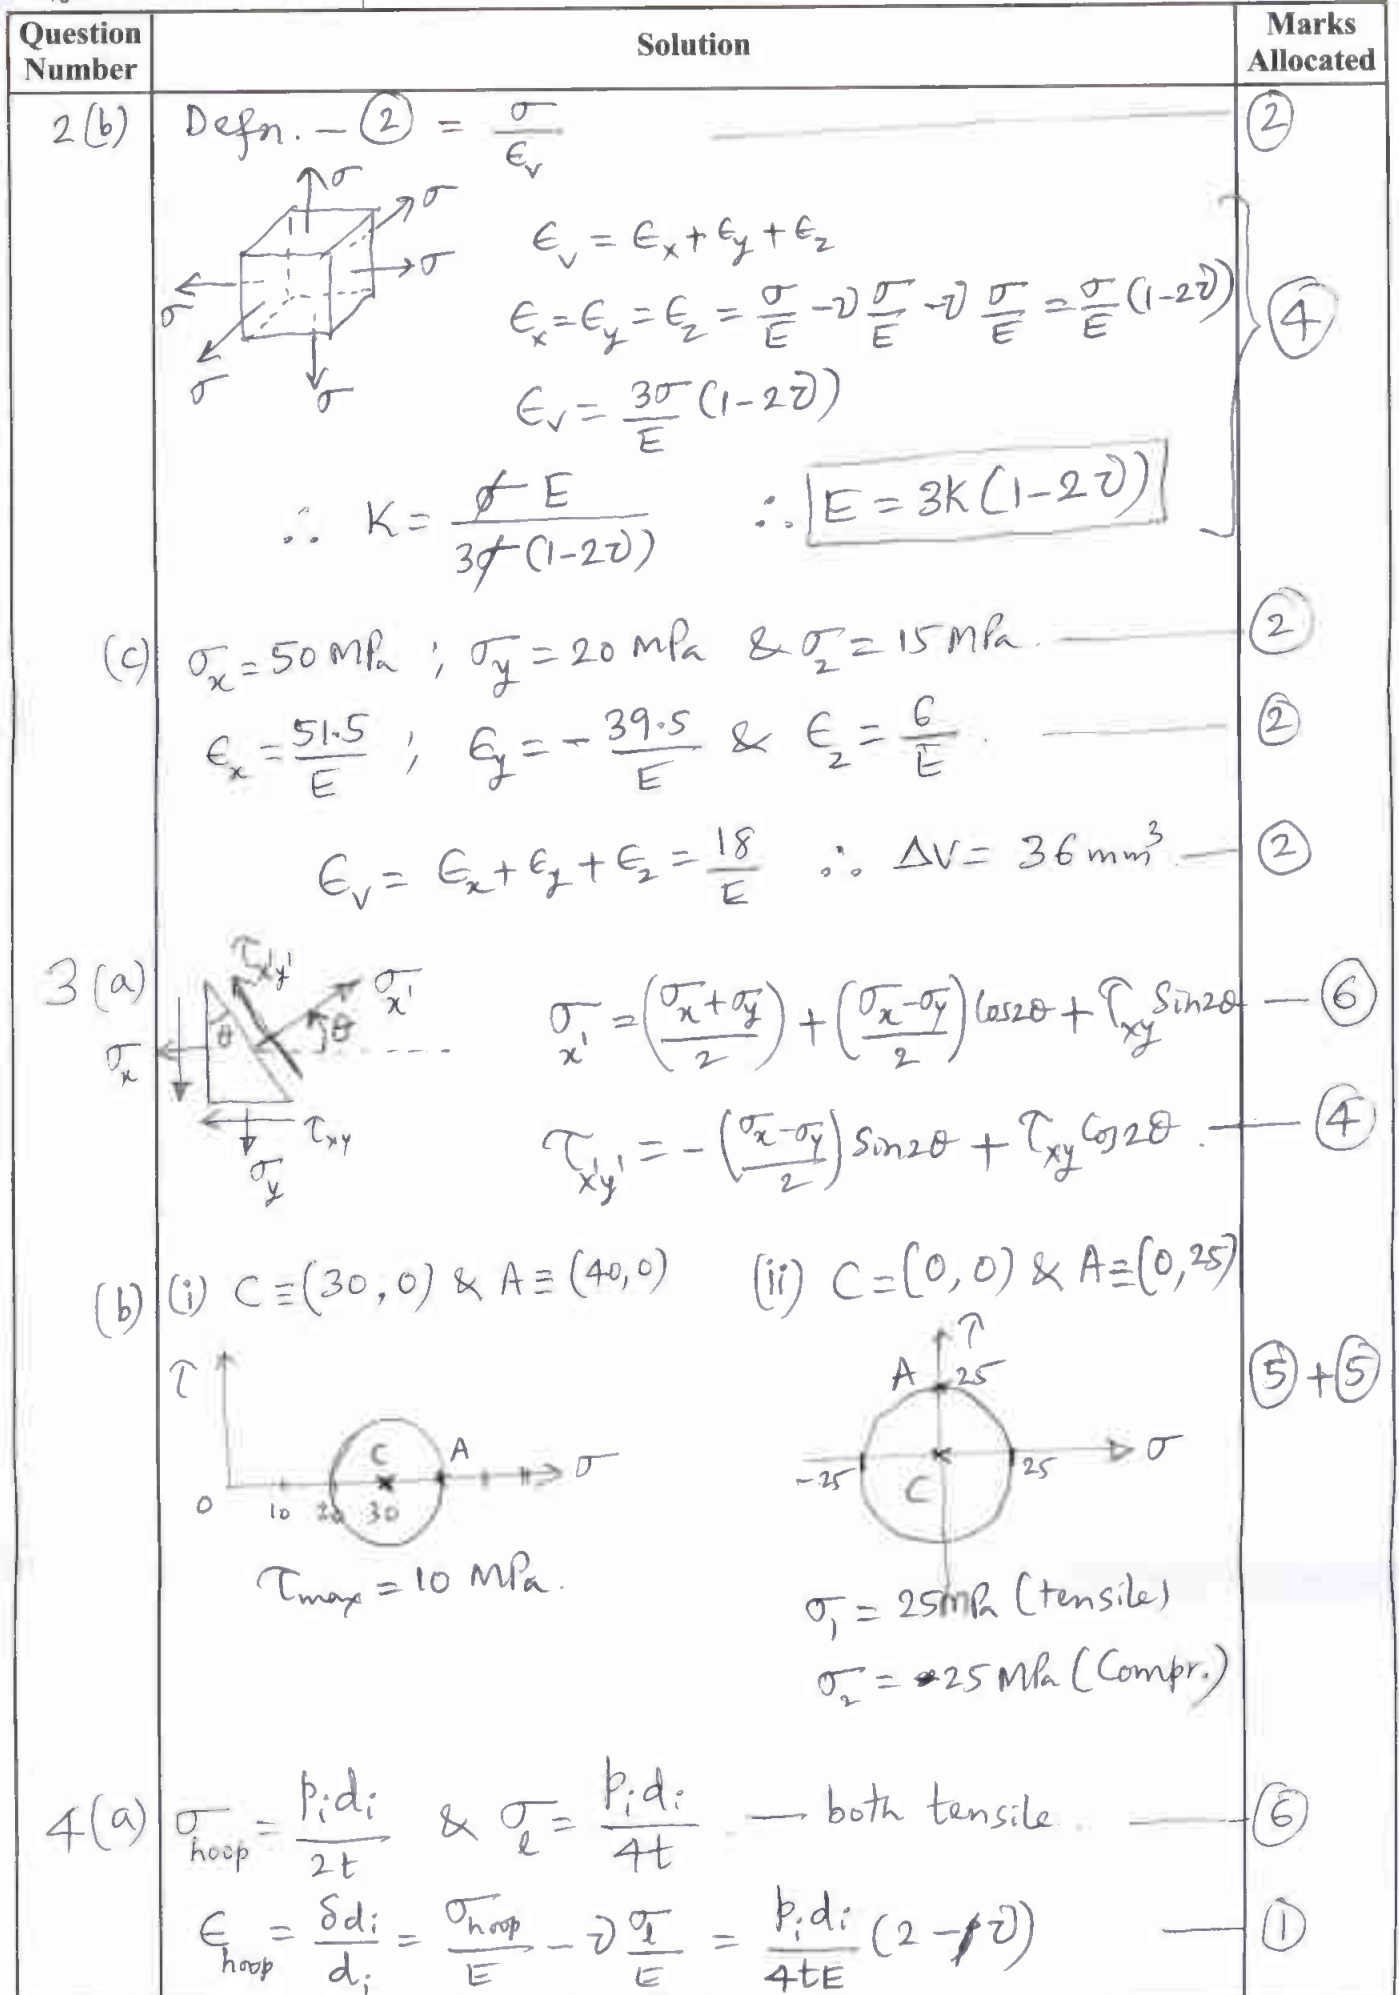 Question Number Solution Marks Allocated
2(b) Defn. - ② = σ/ϵv ②
σ σ σ σ σ σ
ϵv = ϵx + ϵy + ϵz
ϵx = ϵy = ϵz = σ/E - ν σ/E - ν σ/E = σ/E (1-2ν) ④
ϵv = 3σ/E (1-2ν)
∴ K = σ E / 3σ (1-2ν) ∴ E = 3K(1-2ν)
(c) σx = 50 MPa ; σy = 20 MPa & σz = 15 MPa. ②
ϵx = 51.5/E ; ϵy = - 39.5/E & ϵz = 6/E. ②
ϵv = ϵx + ϵy + ϵz = 18/E ∴ ΔV = 36 mm³ ②
3(a) τx'y' σx' θ θ σx τxy σy
σx' = ((σx+σy)/2) + ((σx-σy)/2) Cos2θ + τxy Sin2θ - ⑥
τx'y' = - ((σx-σy)/2) Sin2θ + τxy Cos2θ. - ④
(b) (i) C ≡ (30,0) & A ≡ (40,0) (ii) C = (0,0) & A ≡ (0,25)
τ C A σ 0 10 20 30 τ A 25 -25 C 25 σ ⑤+⑤
τmax = 10 MPa.
σ1 = 25 MPa (tensile)
σ2 = -25 MPa (Compr.)
4(a) σhoop = pidi/2t & σl = pidi/4t - both tensile. ⑥
ϵhoop = δdi/di = σhoop/E - ν σl/E = pidi/4tE (2 - ν) ①